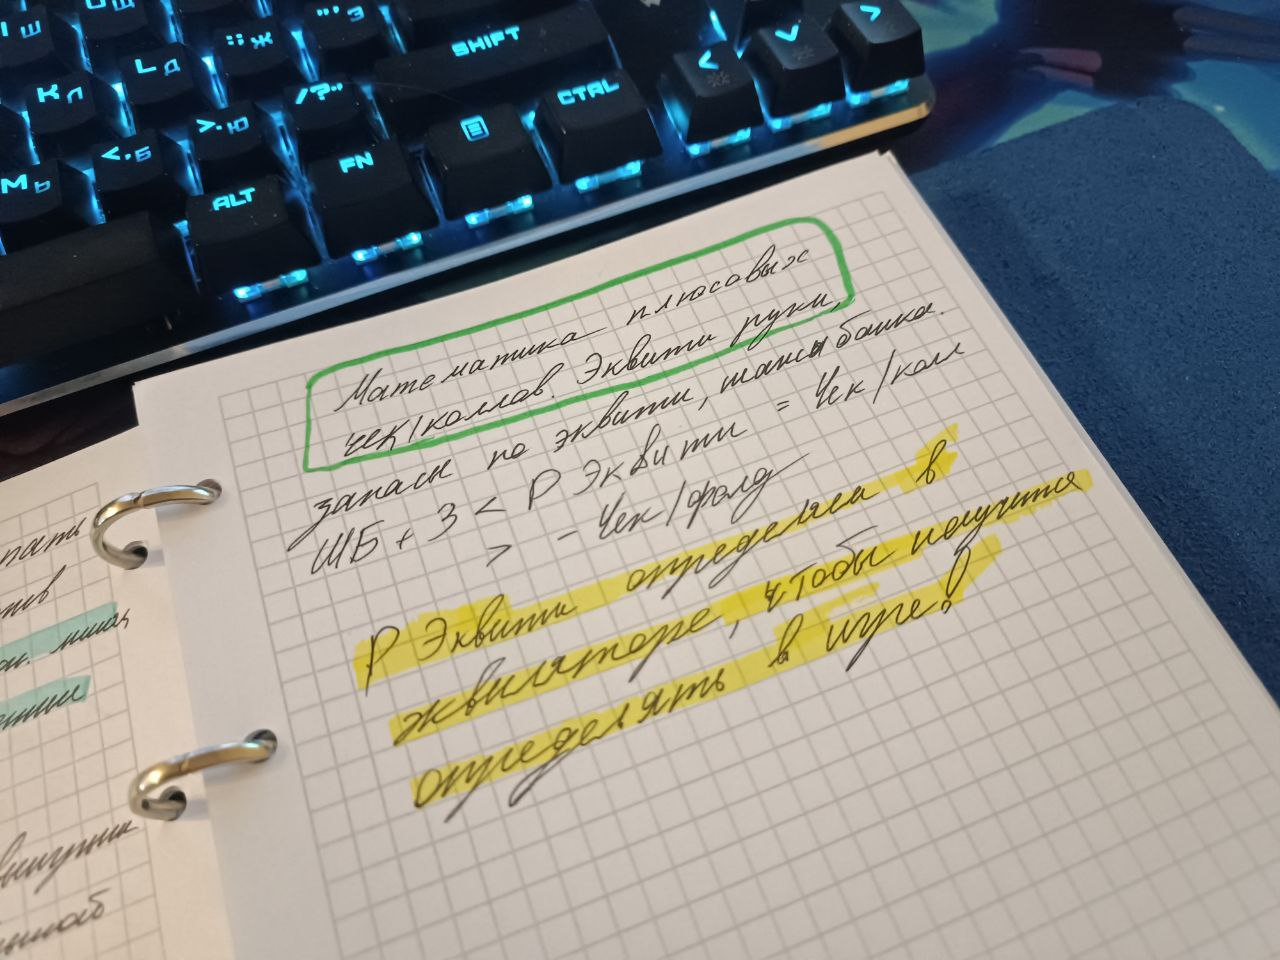 Ш
З
SHIFT
Ж
L Д
К Л
/?
CTRL
>. Ю
<, Б
FN
М Ь
ALT
Математика плюсовых
чек/коллов. Эквити руки,
запасы по эквити, шансы банка.
ШБ + З < Р Эквити = Чек/колл
> - Чек/фолд
Р Эквити определяем в
эквиляторе, чтобы научится
определять в игре!